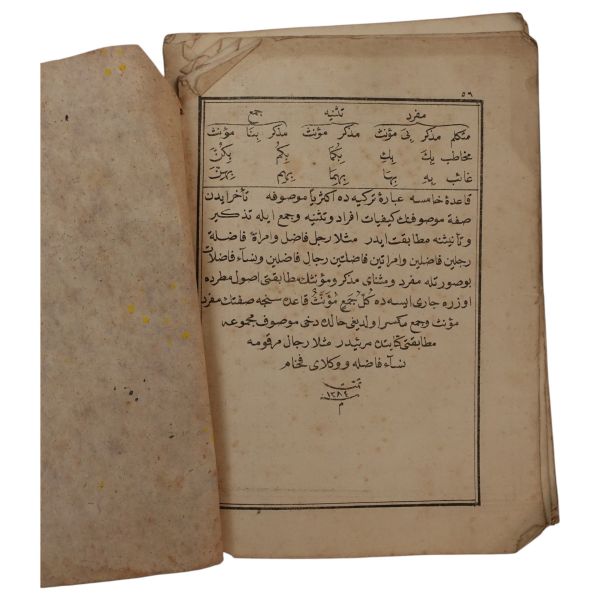 ٥٦
مفرد تثنيه جمع
متكلم مذكر بى مؤنث مذكر مؤنث مذكر بنا مؤنث
مخاطب بك بك بكما بكم بكن
غائب به بها بهما بهم بهن
قاعدۀ خامسه عبارۀ تركيه ده اكثريا موصوفه تأخر ايدن
صفة موصوفنك كيفيات افراد وتثنيه وجمع ايله تذكير
وتأنيثنه مطابقت ايدر مثلا رجل فاضل وامراة فاضلة
رجلين فاضلين وامراتين فاضلتين رجال فاضلين ونسآء فاضلات
بوصورتله مفرد ومثناى مذكر ومؤنثك مطابقتى اصول مطرده
اوزره جارى ايسه ده كُلُّ جَمعٍ مُؤَنَّثٌ قاعده سنجه صفتك مفرد
مؤنث وجمع مكسر اولديغى حالده دخى موصوف مجموعه
مطابقتى كتابتده مرئيدر مثلا رجال مرقومه
نسآء فاضله ووكلاى فخام
تمت
١٢٨٤
م